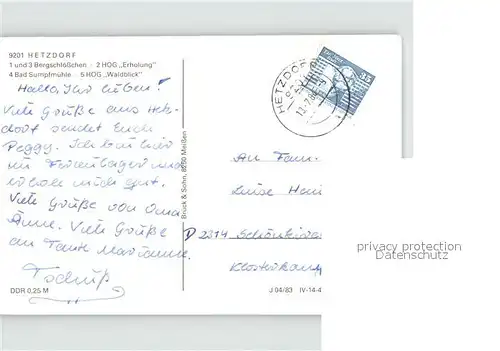 9201 HETZDORF
1 und 3 Bergschlößchen · 2 HOG „Erholung"
4 Bad Sumpfmühle · 5 HOG „Waldblick"
HETZDORF
9201
35
Hallo, Ihr Lieben!
Viele Grüße aus Hetz-
dorf sendet Euch
Peggy. Ich bin hier
im Ferienlager und
erhole mich gut.
Viele Grüße von Oma
Änne. Viele Grüße
an Tante Marianne.
An Fam.
Luise
D 2314
Klosterkamp
privacy protection
Datenschutz
Bruck & Sohn, 8250 Meißen
DDR 0,25 M
J 04/83 IV-14-4